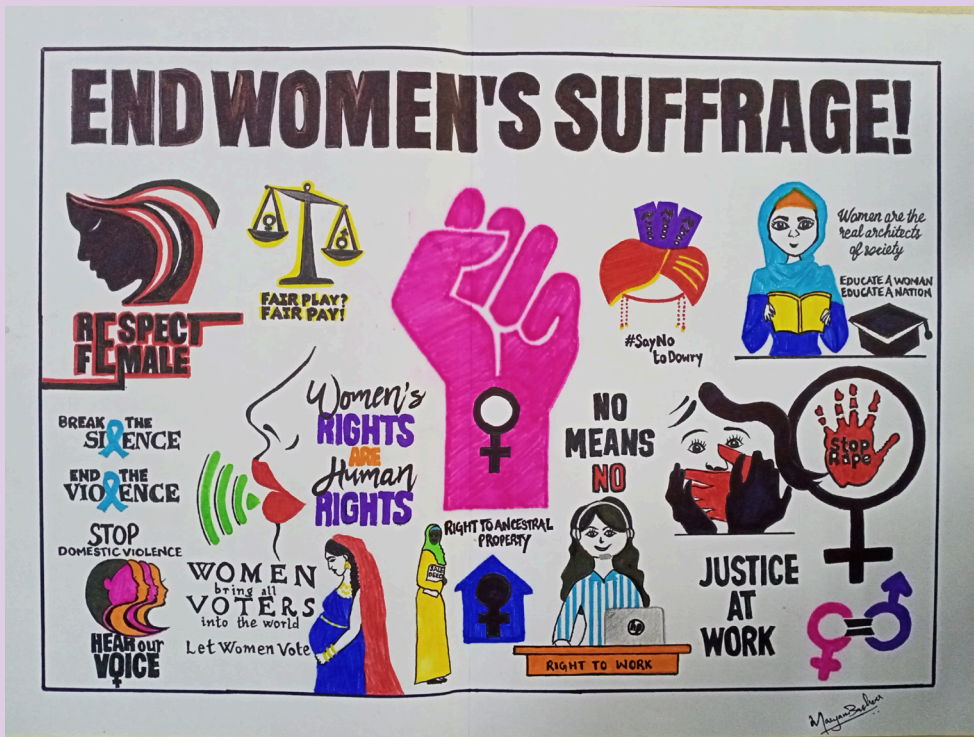 END WOMEN'S SUFFRAGE!
RESPECT
FEMALE
FAIR PLAY?
FAIR PAY!
#SayNo
to Dowry
Women are the
real architects
of society
EDUCATE A WOMAN
EDUCATE A NATION
BREAK THE
SILENCE
END THE
VIOLENCE
STOP
DOMESTIC VIOLENCE
HEAR our
VOICE
Women's
RIGHTS
ARE
Human
RIGHTS
WOMEN
bring all
VOTERS
into the world
Let Women Vote
RIGHT TO ANCESTRAL
PROPERTY
NO
MEANS
NO
Stop
Rape
RIGHT TO WORK
hp
JUSTICE
AT
WORK